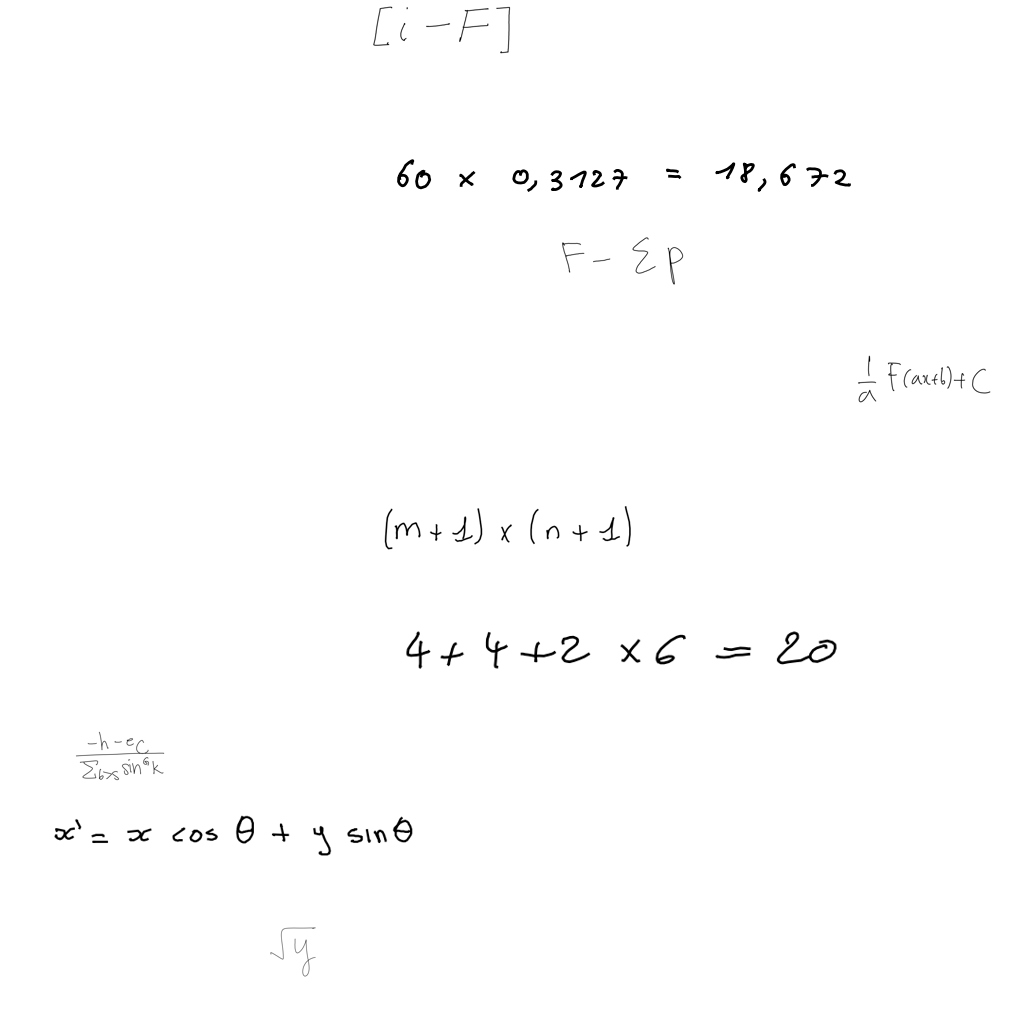 [i - F]
60 × 0,3127 = 18,672
F - Σp
\frac{1}{a} F(ax+b) + C
(m + 1) × (n + 1)
4 + 4 + 2 × 6 = 20
\frac{-h - e_C}{\sum_{6 x} \sin^6 k}
x' = x cos θ + y sin θ
√y